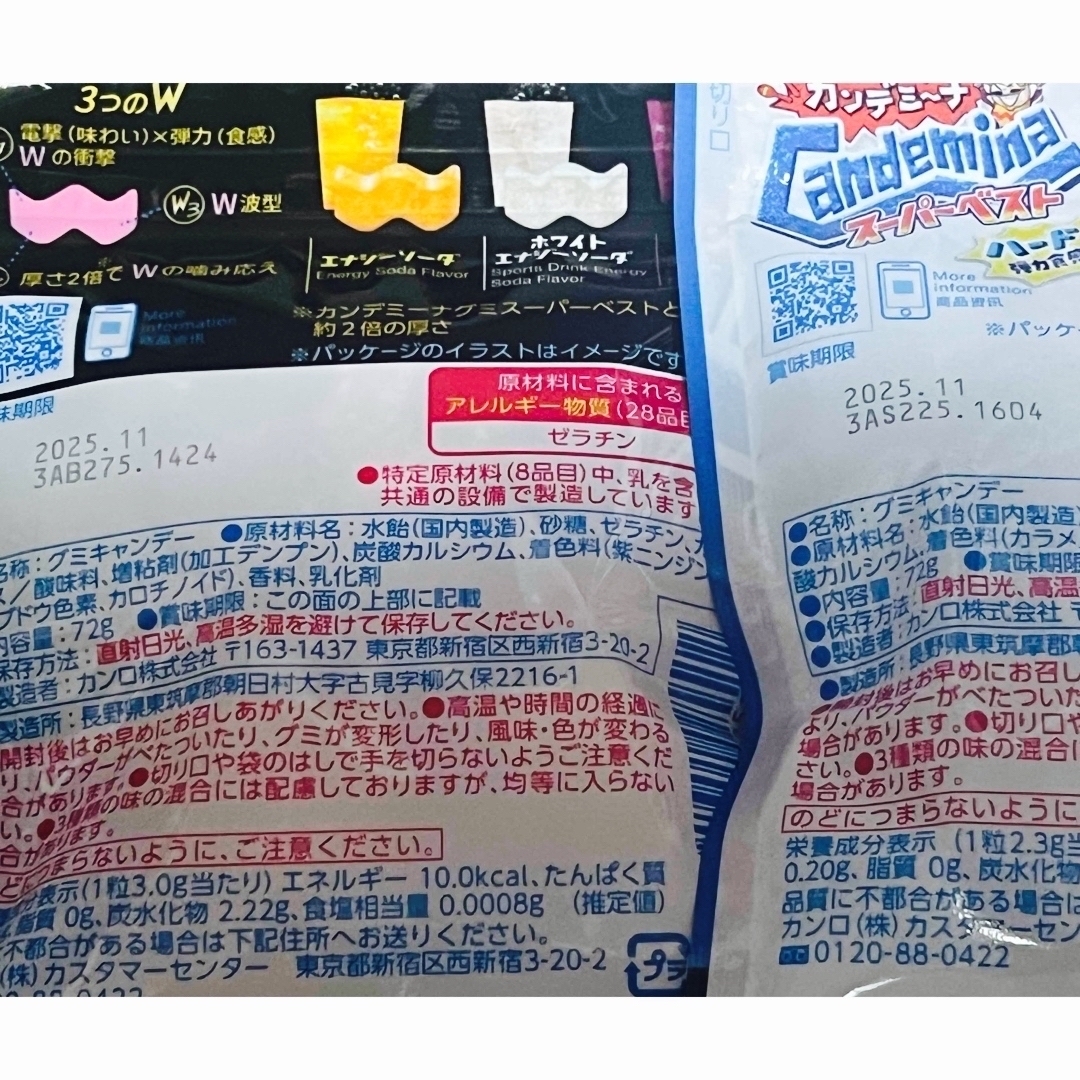 3つのW
電撃(味わい)×弾力(食感)
Wの衝撃
W3 W波型
厚さ2倍※でWの噛み応え
エナジーソーダ
Energy Soda Flavor
ホワイト
エナジーソーダ
Sports Drink Energy
Soda Flavor
※カンデミーナグミスーパーベストと
約2倍の厚さ
※パッケージのイラストはイメージです
More
information
商品资讯
味期限
2025.11
3AB275.1424
原材料に含まれる
アレルギー物質(28品目
ゼラチン
●特定原材料(8品目)中、乳を含
共通の設備で製造しています
名称:グミキャンデー ●原材料名:水飴(国内製造)、砂糖、ゼラチン、
/酸味料、増粘剤(加工デンプン)、炭酸カルシウム、着色料(紫ニンジン
ブドウ色素、カロチノイド)、香料、乳化剤
内容量:72g ●賞味期限:この面の上部に記載
保存方法:直射日光、高温多湿を避けて保存してください。
製造者:カンロ株式会社 〒163-1437 東京都新宿区西新宿3-20-2
製造所:長野県東筑摩郡朝日村大字古見字柳久保2216-1
開封後はお早めにお召しあがりください。●高温や時間の経過に
り、パウダーがべたついたり、グミが変形したり、風味・色が変わる
合があります。●切り口や袋のはしで手を切らないようご注意くだ
い。●3種類の味の混合には配慮しておりますが、均等に入らない
合があります。
どにつまらないように、ご注意ください。
分表示(1粒3.0g当たり) エネルギー 10.0kcal、たんぱく質
脂質 0g、炭水化物 2.22g、食塩相当量 0.0008g (推定値)
不都合がある場合は下記住所へお送りください。
(株)カスタマーセンター 東京都新宿区西新宿3-20-2
0-88-0422
プラ
切り口
カンデミーナ
Candemina
スーパーベスト
ハード
弾力食感
More
information
商品资讯
※パッケ
賞味期限
2025.11
3AS225.1604
●名称:グミキャンデー
●原材料名:水飴(国内製造)
酸カルシウム、着色料(カラメ
●内容量:72g ●賞味期限
●保存方法:直射日光、高温
●製造者:カンロ株式会社 〒
●製造所:長野県東筑摩郡朝
●開封後はお早めにお召し
より、パウダーがべたついた
場合があります。●切り口や
さい。●3種類の味の混合に
場合があります。
のどにつまらないように
栄養成分表示 (1粒2.3g当
0.20g、脂質 0g、炭水化物
品質に不都合がある場合は
カンロ(株) カスタマーセン
0120-88-0422